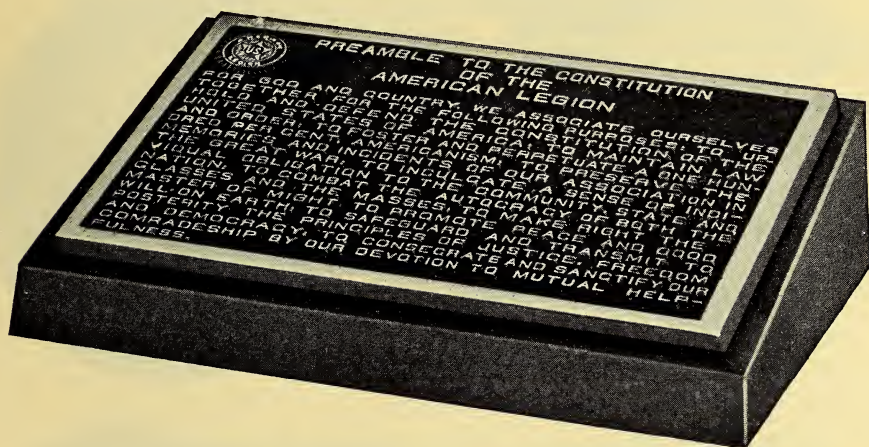 US
PREAMBLE TO THE CONSTITUTION
OF THE
AMERICAN LEGION
FOR GOD AND COUNTRY, WE ASSOCIATE OURSELVES
TOGETHER FOR THE FOLLOWING PURPOSES: TO UP-
HOLD AND DEFEND THE CONSTITUTION OF THE
UNITED STATES OF AMERICA; TO MAINTAIN LAW
AND ORDER; TO FOSTER AND PERPETUATE A ONE HUN-
DRED PER CENT AMERICANISM; TO PRESERVE THE
MEMORIES AND INCIDENTS OF OUR ASSOCIATION IN
THE GREAT WAR; TO INCULCATE A SENSE OF INDI-
VIDUAL OBLIGATION TO THE COMMUNITY, STATE AND
NATION; TO COMBAT THE AUTOCRACY OF BOTH THE
CLASSES AND THE MASSES; TO MAKE RIGHT THE
MASTER OF MIGHT; TO PROMOTE PEACE AND GOOD
WILL ON EARTH; TO SAFEGUARD AND TRANSMIT TO
POSTERITY THE PRINCIPLES OF JUSTICE, FREEDOM
AND DEMOCRACY; TO CONSECRATE AND SANCTIFY OUR
COMRADESHIP BY OUR DEVOTION TO MUTUAL HELP-
FULNESS.